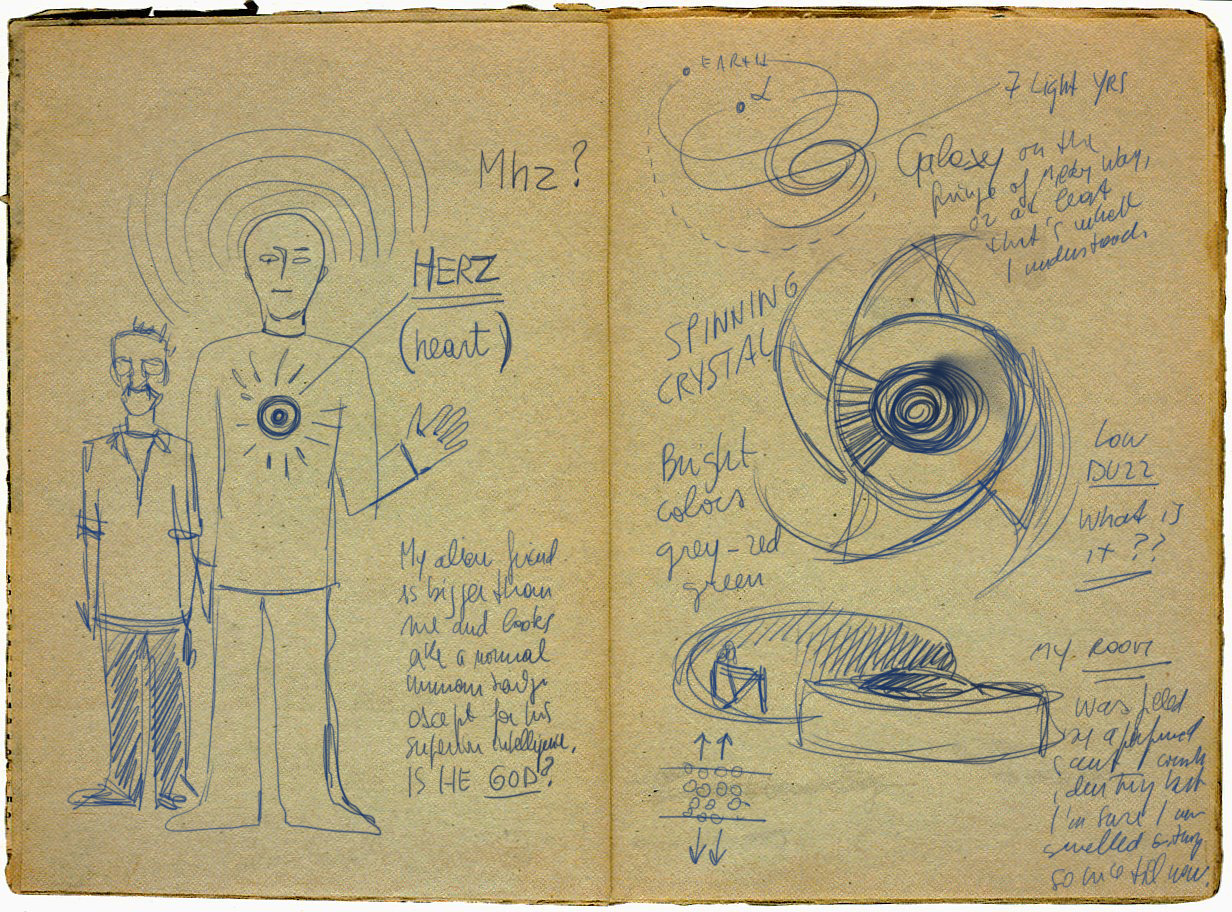 Mhz?
HERZ
(heart)
My alien friend
is bigger than
me and looks
like a normal
human
except for his
superior intelligence,
IS HE GOD?
EARTH
7 Light YRS
Galaxy on the
fringe of Milky Way,
or at least
that's what
I understood.
SPINNING
CRYSTAL
Bright
colors
grey-red
green
Low
BUZZ
What is
it ??
MY ROOM
was filled
by a perfumed
scent I
identify but
I'm sure I
smelled
so nice till now.